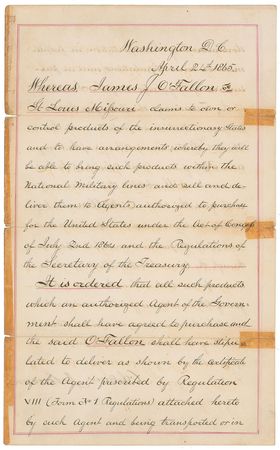 Washington D.C.
April 2d 1865.
Whereas, James J. O'Fallon of
St Louis Missouri claims to own or
control products of the insurrectionary States
and to have arrangements whereby they will
be able to bring such products within the
National Military lines and sell and de-
liver them to Agents authorized to purchase
for the United States under the Act of Congress
of July 2nd 1864 and the Regulations of
the Secretary of the Treasury.
It is ordered that all such products
which an authorized Agent of the Govern-
ment shall have agreed to purchase and
the said O'Fallon shall have stipu-
lated to deliver as shown by the certificate
of the Agent prescribed by Regulation
VIII (Form No 1 Regulations) attached hereto
by such Agent and being transported or in